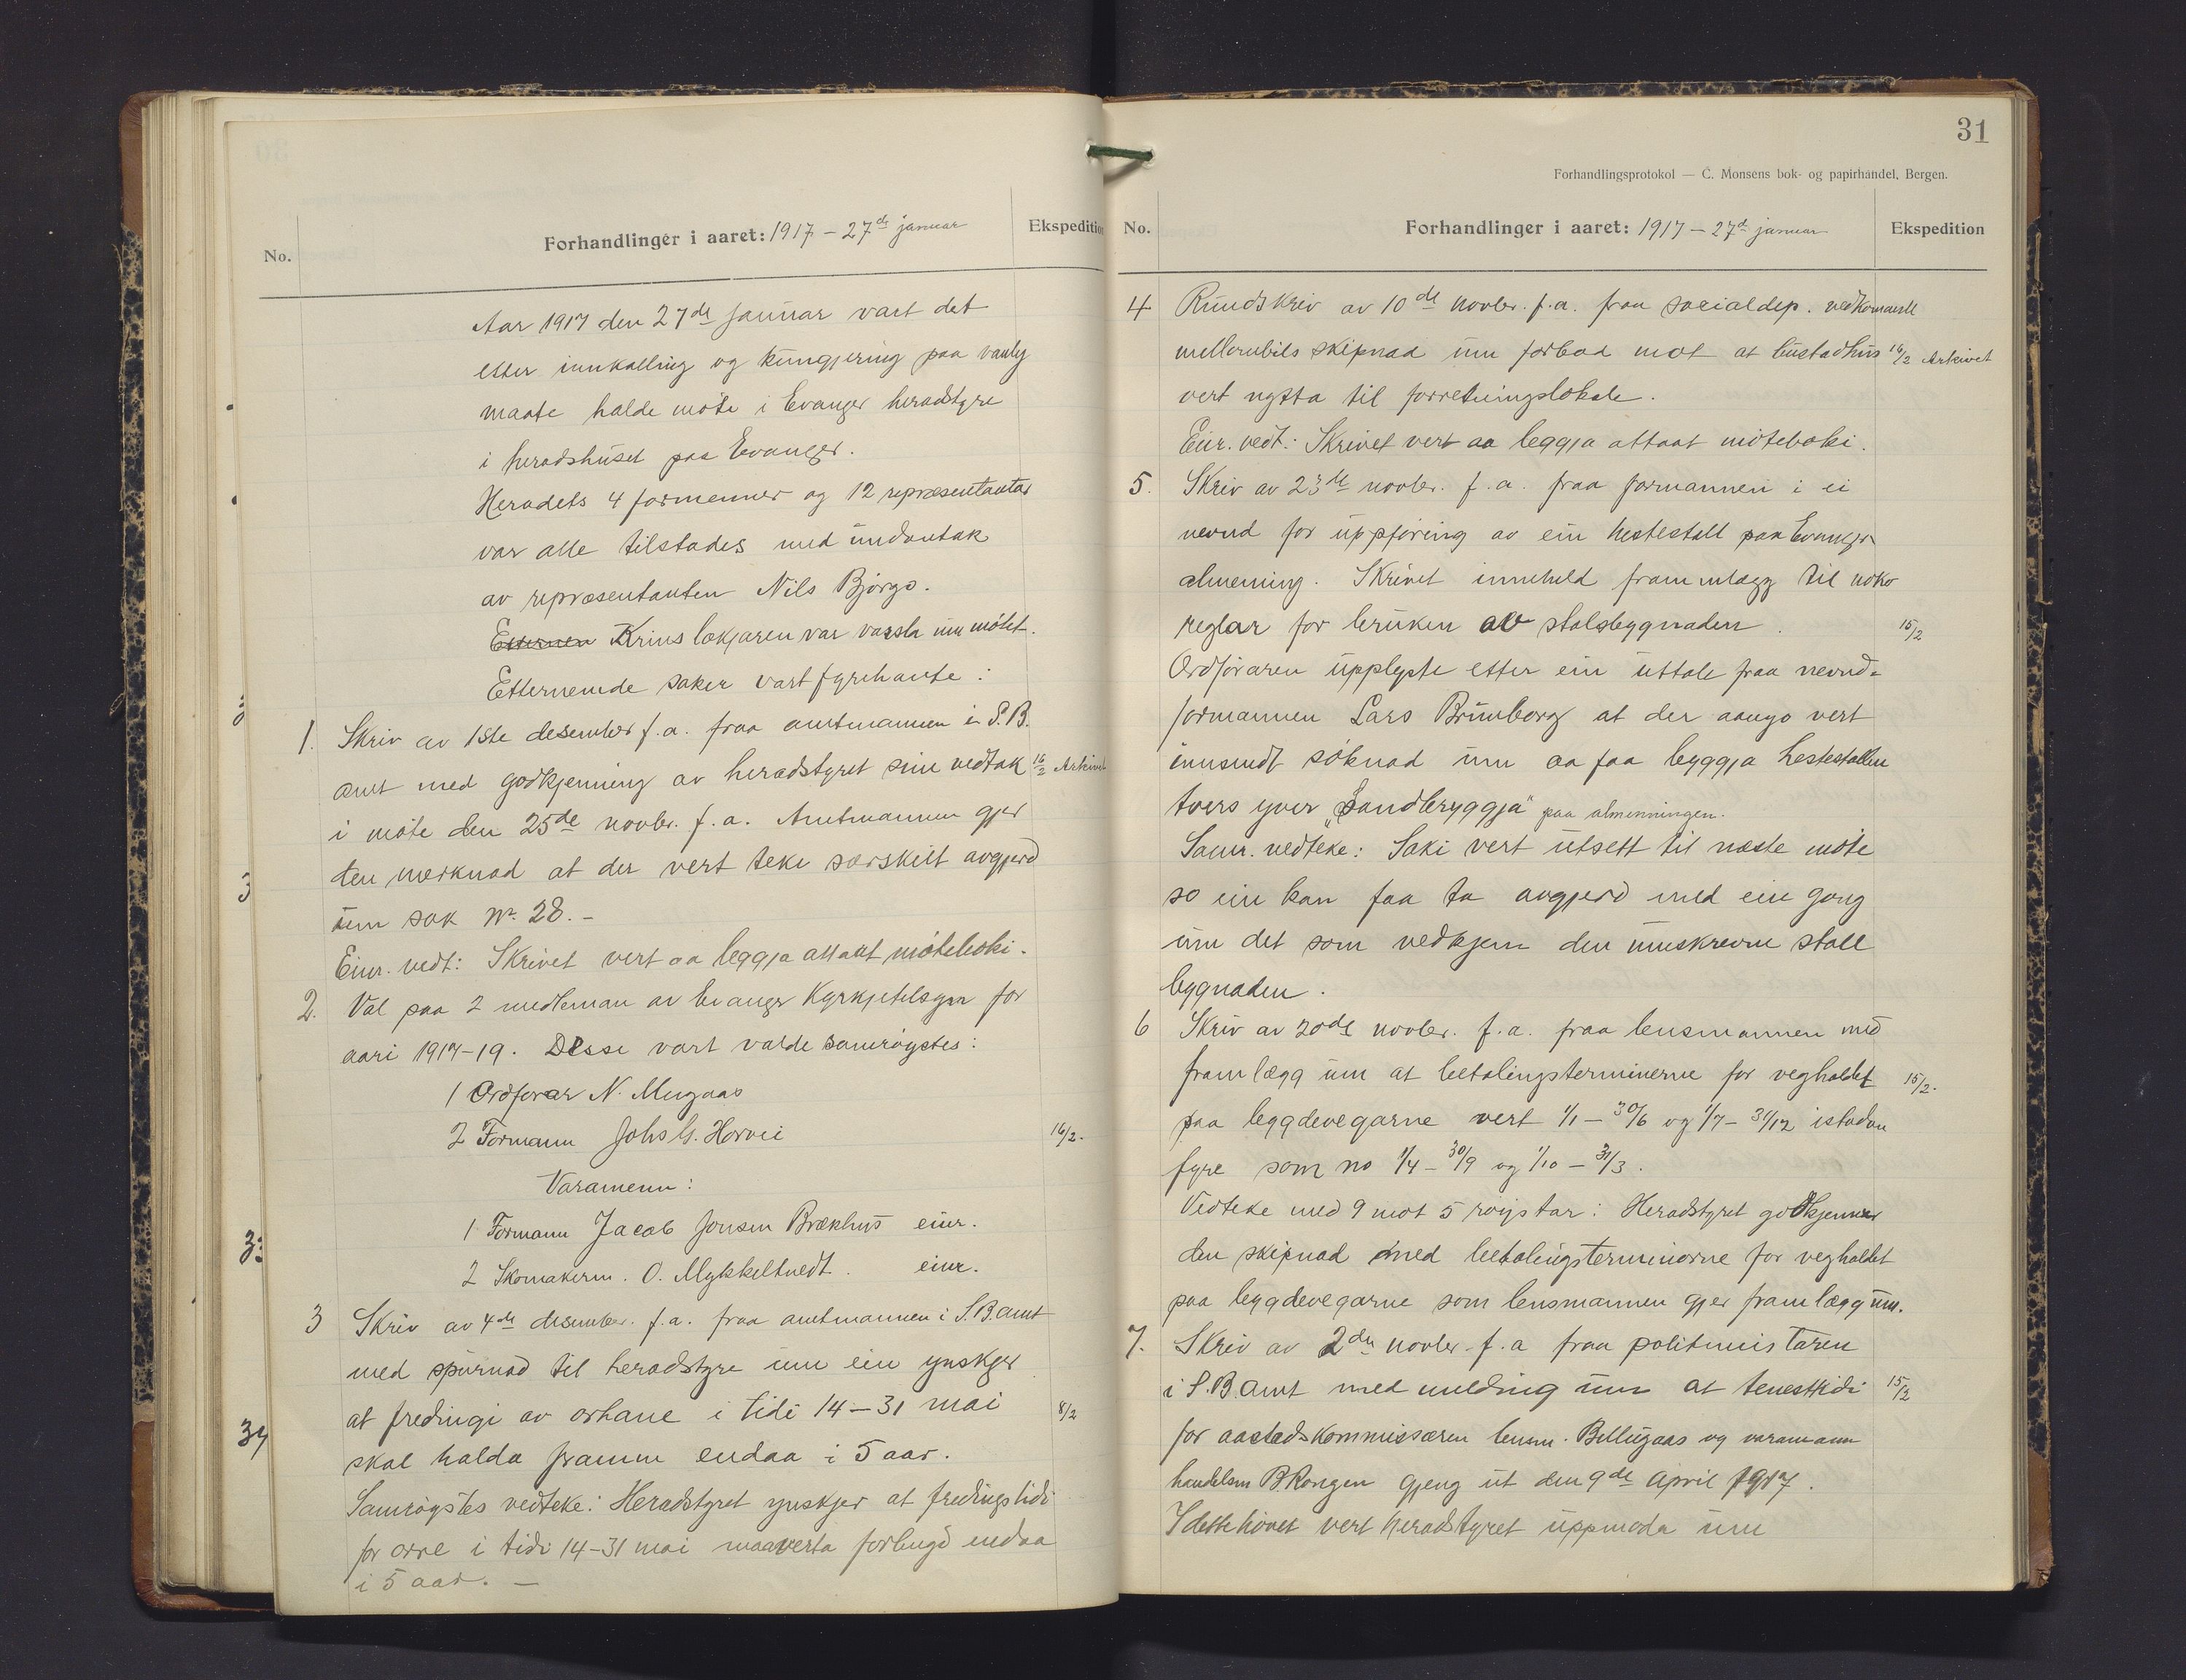 No.
Forhandlinger i aaret: 1917 – 27de januar
Ekspedition
Aar 1917 den 27de januar vart det
etter innkalling og kunngjering paa vanleg
maate halde møte i Evanger heradstyre
i heradshuset paa Evanger.
Heradets 4 formenner og 12 repræsentantar
var alle tilstades med undantak
av repræsentanten Nils Bjørgo.
Krinslækjaren var varsla um møtet.
Etternemde saker vart fyrehavte:
1. Skriv av 1ste desember f.a. fraa amtmannen i S.B.
amt med godkjenning av heradstyret sine vedtak 16/2 Arkivet
i møte den 25de novbr. f.a. Amtmannen gjer
den merknad at der vert teke særskilt avgjerd
um sak Nr. 28. –
Einr. vedt: Skrivet vert aa leggja attaat møteboki.
2. Val paa 2 medleman av Evanger Kyrkjetilsyn for
aari 1917–19. Desse vart valde samrøystes:
1 Ordførar N. Mugaas
2 Formann Johs G. Horvei 16/2.
Varamenn:
1 Formann Jacob Jonsen Brækhus einr.
2 Skomakerm. O. Mykkeltvedt. einr.
3 Skriv av 4de desember. f.a. fraa amtmannen i S.B. amt
med spurnad til heradstyre um ein ynskjer
at fredingi av orhane i tidi 14–31 mai 8/2
skal halda framm endaa i 5 aar.
Samrøystes vedteke: Heradstyret ynskjer at fredingstidi
for orre i tidi 14–31 mai maa verta forlengd endaa
i 5 aar. –
3
3
33
34
31
Forhandlingsprotokol — C. Monsens bok- og papirhandel, Bergen.
No.
Forhandlinger i aaret: 1917 – 27de januar
Ekspedition
4 Rundskriv av 10de novbr. f.a. fraa socialdep. vedkomande
mellombils skipnad um forbod mot at bustadhus 16/2 Arkivet
vert nytta til forretningslokale.
Einr. vedt.: Skrivet vert aa leggja attaat møteboki.
5. Skriv av 23de novbr. f.a. fraa formannen i ei
nevnd for uppføring av ein hestestall paa Evanger
almening. Skrivet inneheld frammlegg til noko
reglar for bruken av stalsbygnaden. 15/2
Ordføraren upplyste etter ein uttale fraa nevnd-
formannen Lars Brunborg at der aango vert
innsendt søknad um aa faa byggja hestestallen
tvers yver „Sandbryggja" paa almenningen.
Samr. vedteke: Saki vert utsett til næste møte
so ein kan faa ta avgjerd med ein gong
um det som vedkjem den umskrevne stall
bygnaden.
6 Skriv av 20de novbr. f.a. fraa lensmannen med
framlegg um at betalingsterminerne for veghaldet 15/2.
paa bygdevegarne vert 1/1 – 30/6 og 1/7 – 31/12 istadan
fyre som no 1/4 – 30/9 og 1/10 – 31/3.
Vedteke med 9 mot 5 røystar: Heradstyret godkjenner
den skipnad med betalingsterminorne for veghaldet
paa bygdevegarne som lensmannen gjer framlegg um.
7. Skriv av 2den novbr. f.a fraa politimeistaren
i S.B. amt med melding um at tenestidi 15/2
for aastadskommissæren lensm. Bolligaas og varamann
handelsm B Rongen gjeng ut den 9de april 1917.
I dette høvet vert heradstyret uppmoda um